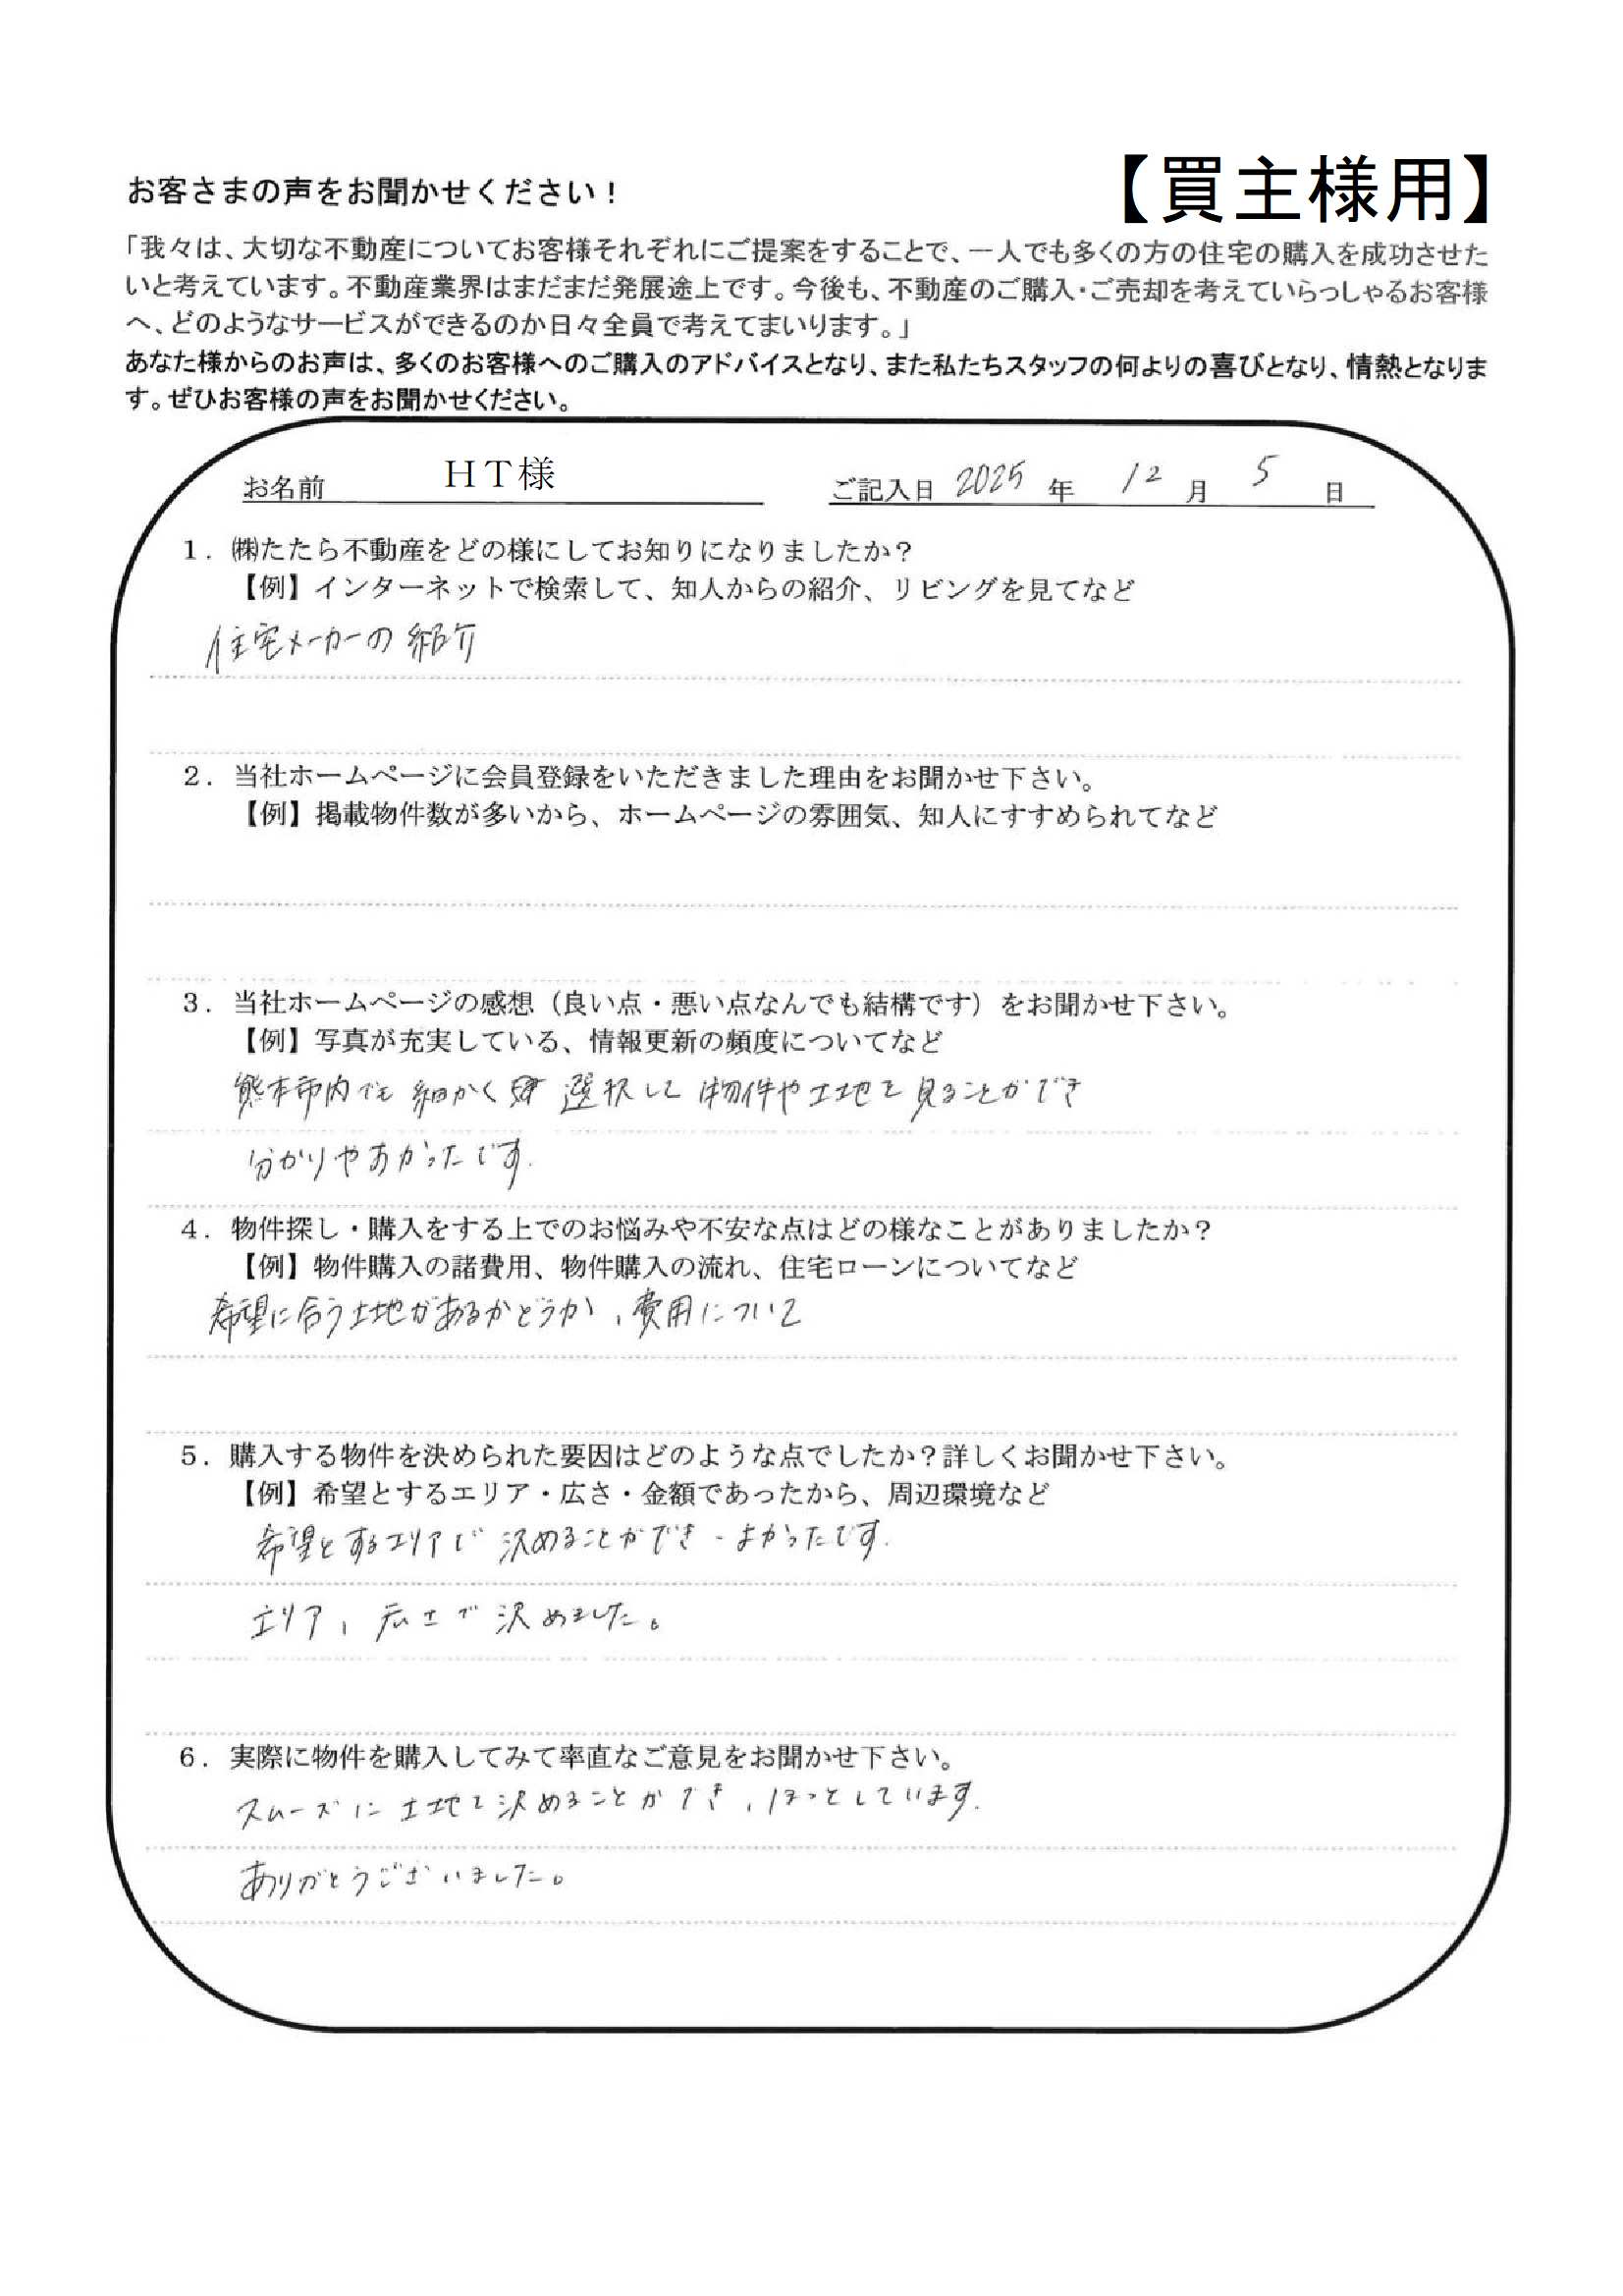 【買主様用】
お客さまの声をお聞かせください！
「我々は、大切な不動産についてお客様それぞれにご提案をすることで、一人でも多くの方の住宅の購入を成功させた
いと考えています。不動産業界はまだまだ発展途上です。今後も、不動産のご購入・ご売却を考えていらっしゃるお客様
へ、どのようなサービスができるのか日々全員で考えてまいります。」
あなた様からのお声は、多くのお客様へのご購入のアドバイスとなり、また私たちスタッフの何よりの喜びとなり、情熱となりま
す。ぜひお客様の声をお聞かせください。
お名前 ＨＴ様 ご記入日 2025 年 12 月 5 日
１．㈱たたら不動産をどの様にしてお知りになりましたか？
【例】インターネットで検索して、知人からの紹介、リビングを見てなど
住宅メーカーの紹介
２．当社ホームページに会員登録をいただきました理由をお聞かせ下さい。
【例】掲載物件数が多いから、ホームページの雰囲気、知人にすすめられてなど
３．当社ホームページの感想（良い点・悪い点なんでも結構です）をお聞かせ下さい。
【例】写真が充実している、情報更新の頻度についてなど
熊本市内でも細かく選択して物件や土地を見ることができ
分かりやすかったです.
４．物件探し・購入をする上でのお悩みや不安な点はどの様なことがありましたか？
【例】物件購入の諸費用、物件購入の流れ、住宅ローンについてなど
希望に合う土地があるかどうか、費用について
５．購入する物件を決められた要因はどのような点でしたか？詳しくお聞かせ下さい。
【例】希望とするエリア・広さ・金額であったから、周辺環境など
希望とするエリアで決めることができ、よかったです.
エリア、広さで決めました。
６．実際に物件を購入してみて率直なご意見をお聞かせ下さい。
スムーズに土地を決めることができ、ほっとしています.
ありがとうございました。